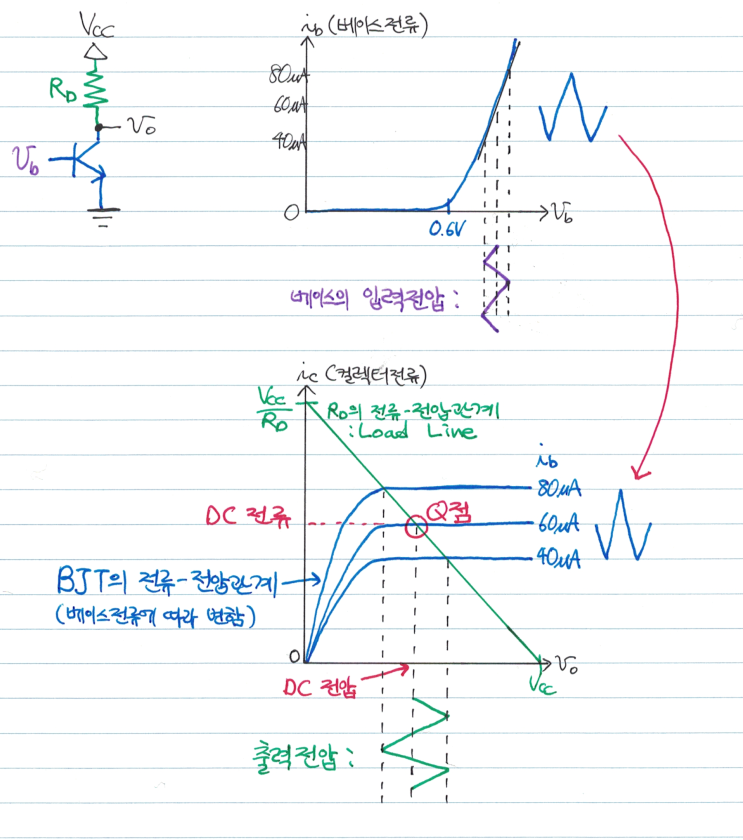 Vcc
RD
Vo
Vb
ib (베이스전류)
80uA
60uA
40uA
0
0.6V
Vb
베이스의 입력전압 :
ic (컬렉터전류)
Vcc
RD
RD의 전류-전압관계
: Load Line
ib
80uA
DC 전류
Q점
60uA
40uA
BJT의 전류-전압관계
(베이스전류에 따라 변함)
0
Vo
DC 전압
Vcc
출력전압 :